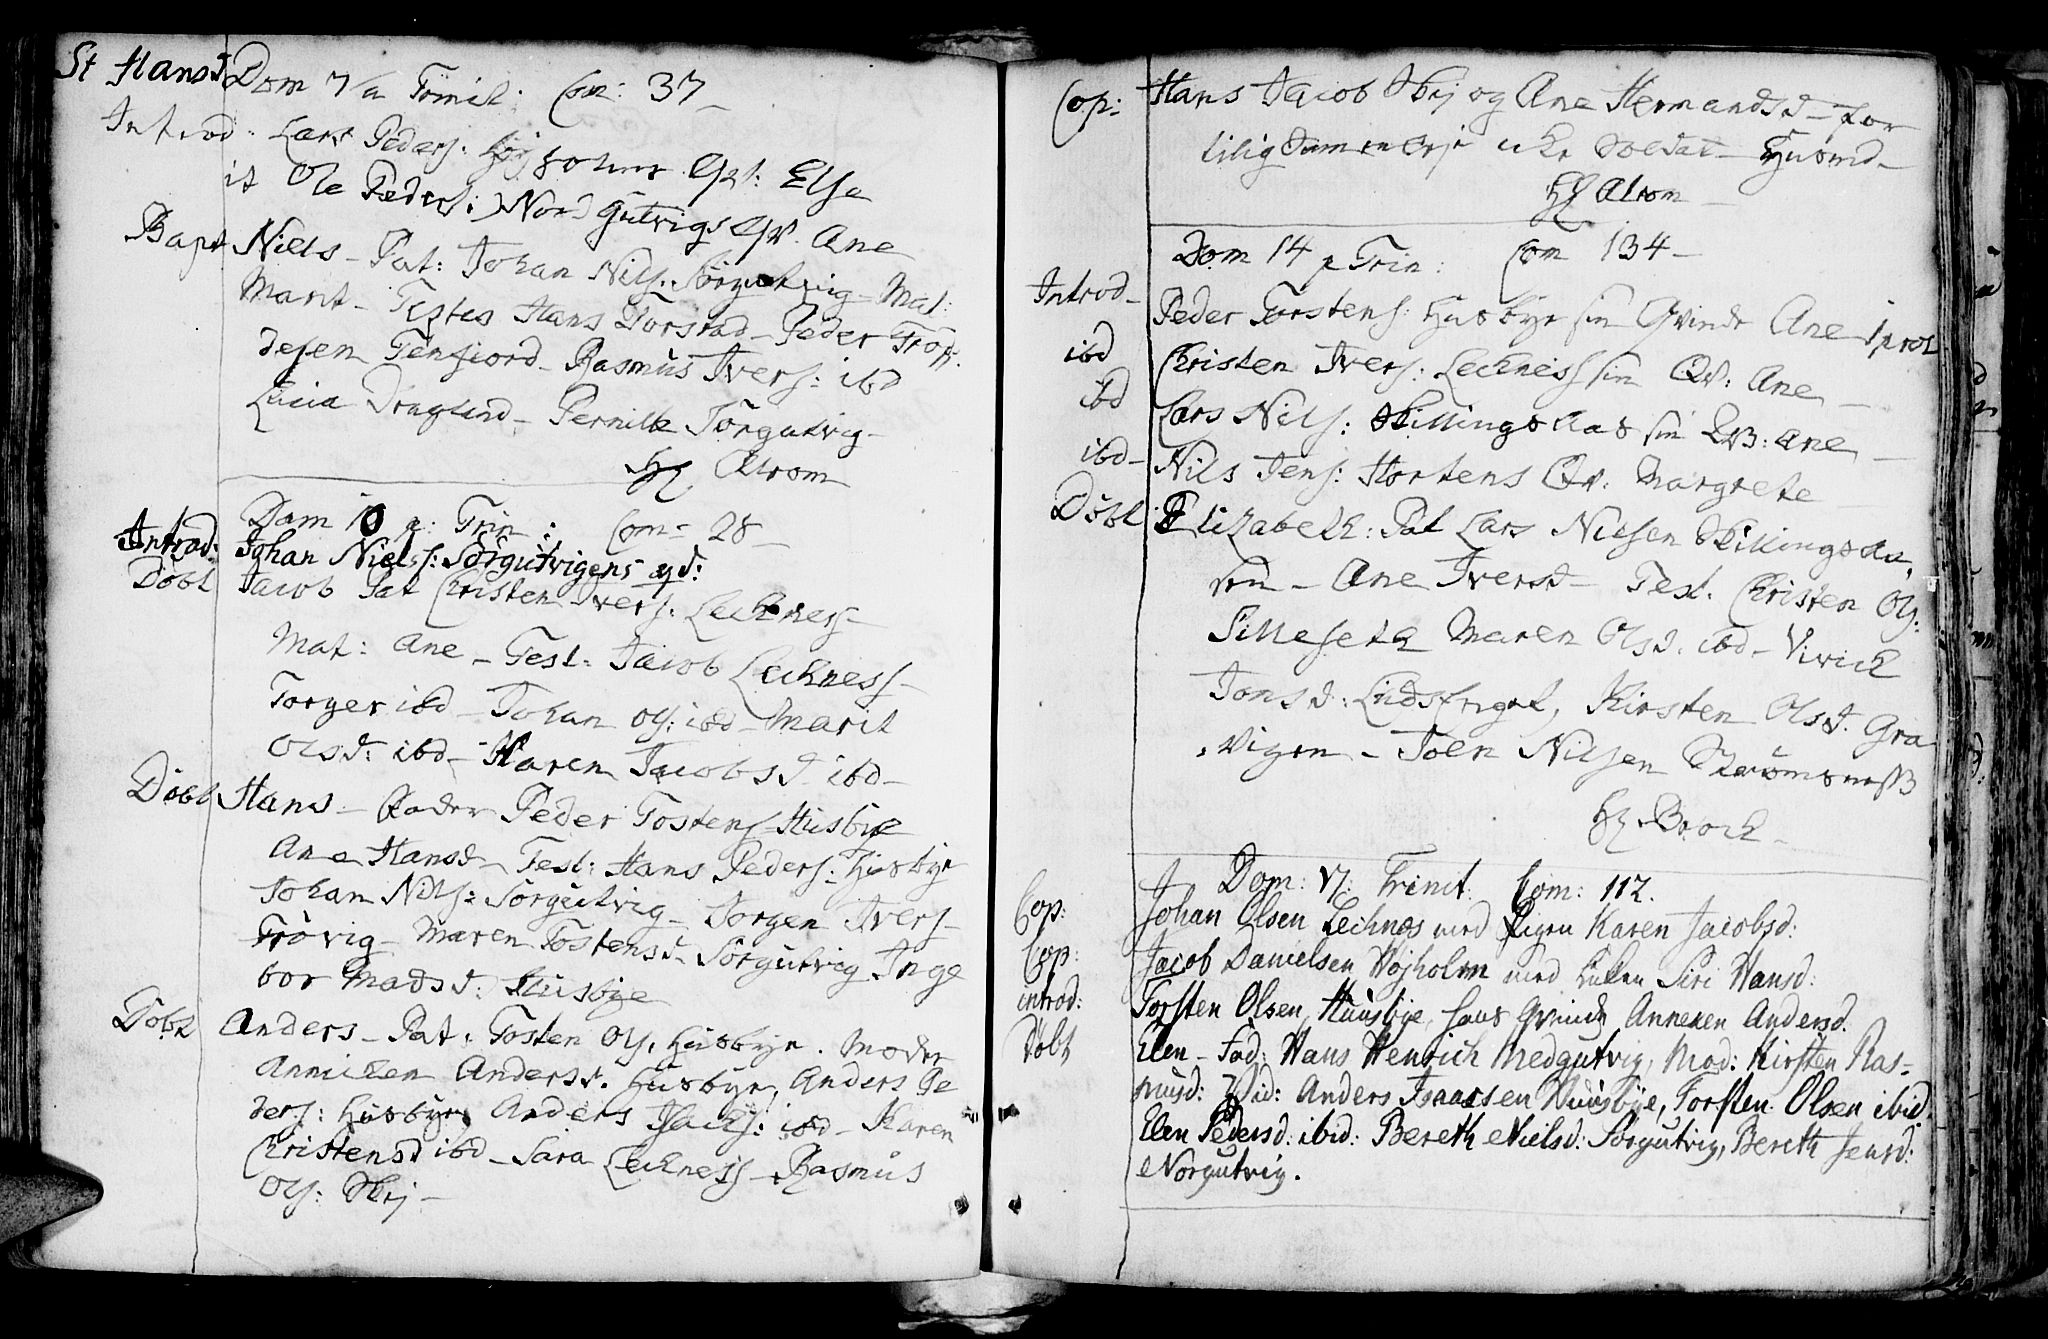 St Hansd Dom 7 a Com: 37
Introd: Lars Peders: Elsa
it Ole Peders: Nord Gutvigs Qv. Ane
Bapt Niels - Pat: Johan Nils: Sørgutvig - Mat:
Marit - Testes Hans Torstad - Peder Trod,
desen Tenfiord - Rasmus Ivers: ibd
Lucia Draglund - Pernille Sørgutvig -
Hr Alrom
Dom 10 p: Trin: Com = 28 -
Introd: Johan Niels: Sørgutvigens
Døbt Jacob Pat Christen Ivers: Lecknes -
Mat: Ane - Test: Jacob Lecknes -
Torger ibd - Johan Ols: ibd - Marit
Olsd: ibd - Karen Jacobsd ibd -
Døbt Hans - Fader Peder Tostens Husbye
Ane Hansd - Test: Hans Peders: Husbye
Johan Nils: Sørgutvig - Jørgen Ivers -
Trøvig - Maren Tostensd - Sørgutvig Inge
bor Madsd: Husbye
Døbt Anders - Pat: Tosten Ols, Husbye. Moder
Anniken Andersd. Husbye, Anders Pe
ders: Husbye, Anders Isachs: ibd - Karen
Christensd ibd - Sara Lecknes - Rasmus
Ols: Skej -
Cop: Hans Jacob Skej og Ane Hermandsd - for
Soldat - Husmd -
Hr Alrom -
Dom 14 p Trin: Com 134 -
Introd - Peder Torstens: Husbye sin Qvinde Ane
ibd Christen Ivers: Lecknes sin Qv: Ane -
ibd Lars Nils: Skillingsaas sin Qv: Ane -
ibd - Nils Jens: Hortens Qv: Margrete -
Døbt Elizabeth: Pat Lars Nilsen Skillingsaa,
sen - Ane Iversd - Test. Christen Ols:
Silleseth Maren Olsd. ibd - Virick
Jonsd: Kirsten Olsd. Gra
vigen - Joen Nilsen Strømsness
Hr Brock -
Dom: 17: Trinit. Com: 112.
Cop: Johan Olsen Lecknes med Pigen Karen Jacobsd:
Cop: Jacob Danielsen Højholm med Enken Siri Hansd:
introd: Torsten Olsen Huusbye, hans Qvinde Anneken Andersd.
Døbt Elen - Fad: Hans Henrich Medgutvig, Mod: Kirsten Ras-
musd: Anders Isaacsen Huusbye, Torsten Olsen ibid.
Elen Pedersd: ibid: Bereth Nielsd: Sørgutvig, Bereth Jensd:
Norgutvig.